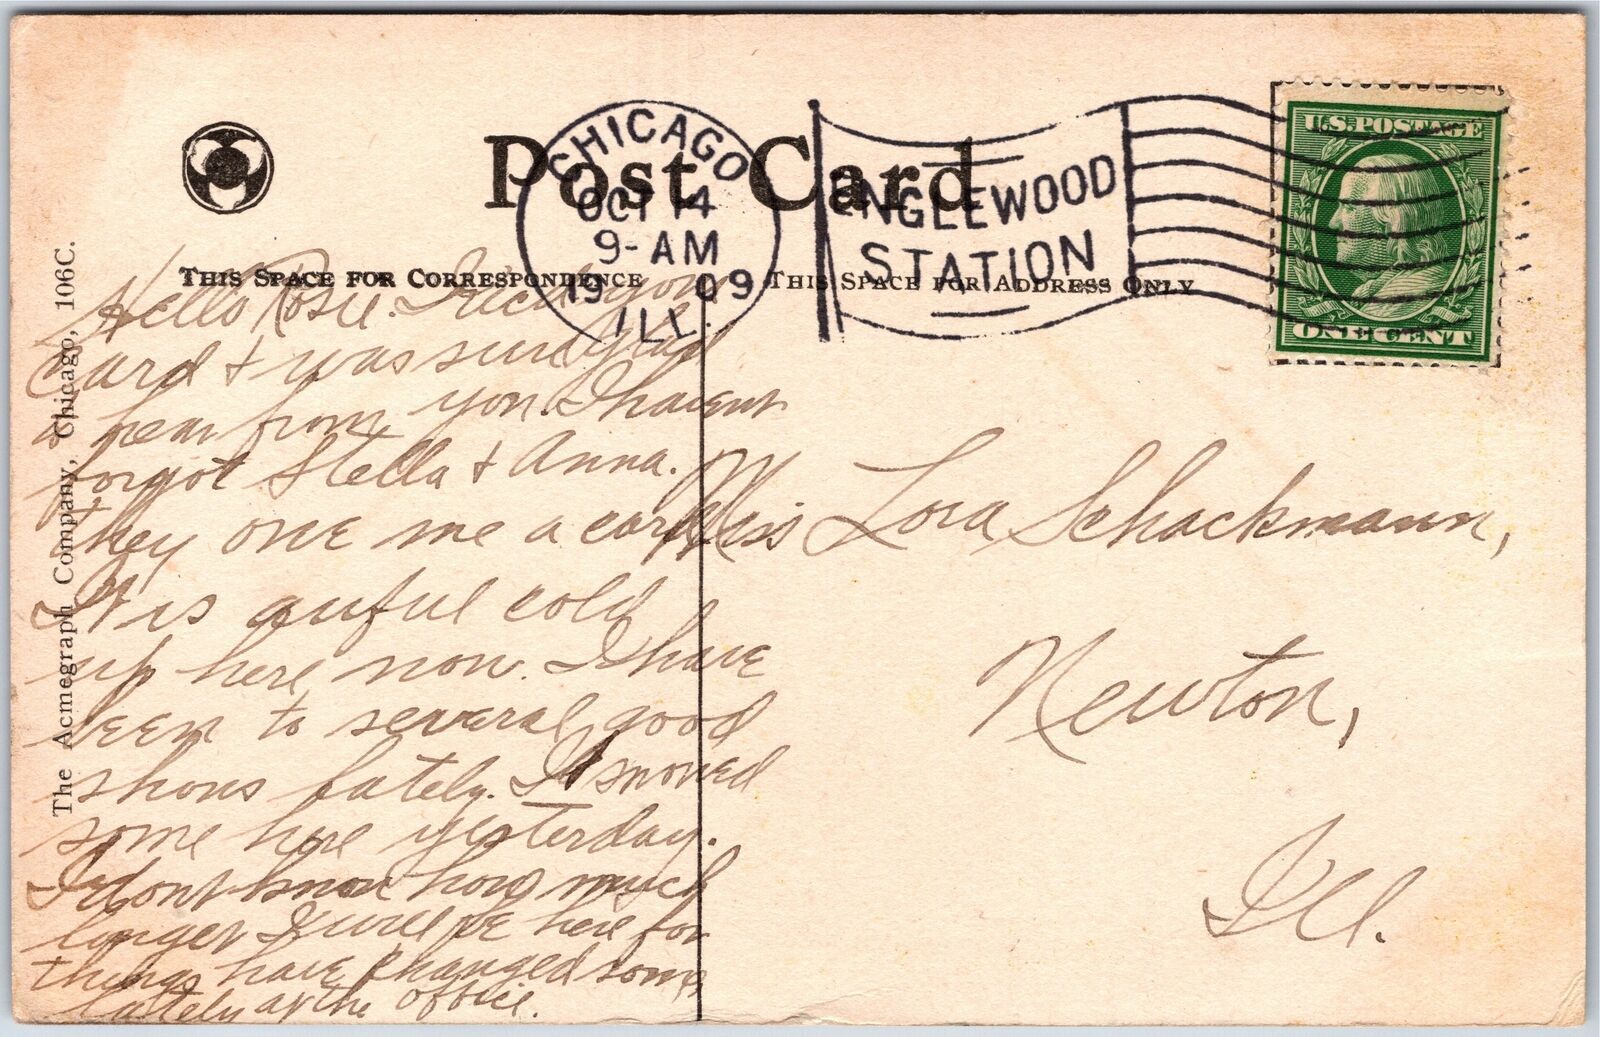 Post Card
CHICAGO
OCT 14
9-AM
19 09
ILL.
ENGLEWOOD
STATION
U.S. POSTAGE
ONE CENT
THIS SPACE FOR CORRESPONDENCE
THIS SPACE FOR ADDRESS ONLY
The Acmegraph Company, Chicago, 106C.
Hello Rosie. Rec'd your
card + was sure glad
to hear from you. I havent
forgot Stella + Anna.
they owe me a card.
It is awful cold
up here now. I have
been to several good
shows lately. It snowed
some here yesterday.
I dont know how much
longer I will be here for
things have changed some
lately at the office.
Miss Lora Schackmann,
Newton,
Ill.